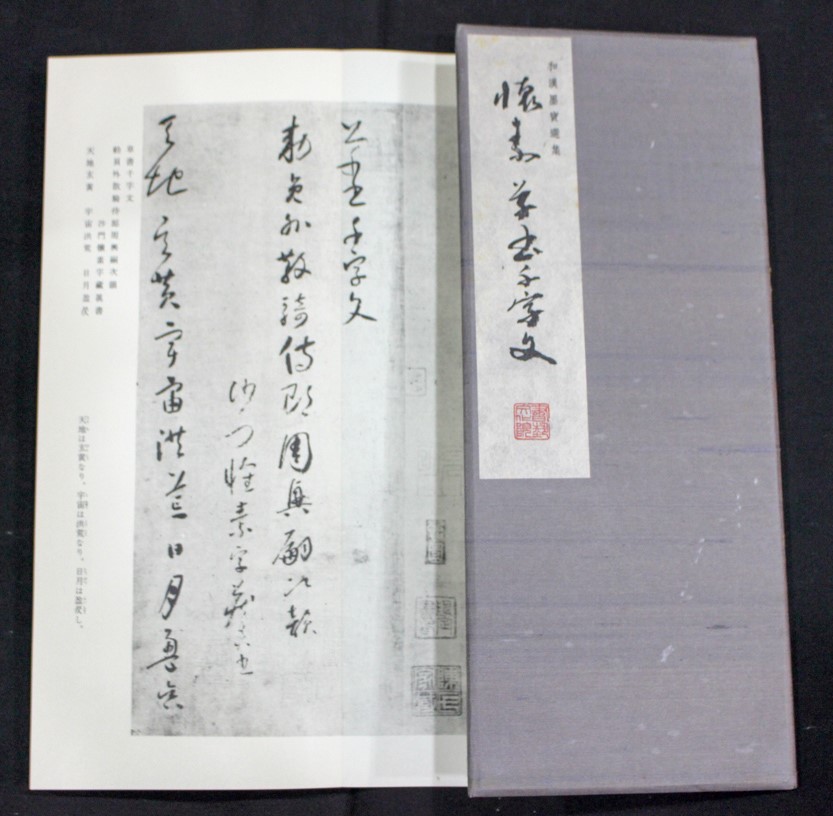 和漢墨寶選集
懷素 草書千字文
草書千字文
勅員外散騎侍郎周興嗣次韻
沙門懷素字藏真書
天地玄黃宇宙洪荒日月盈昃
草書千字文
勅員外散騎侍郎周興嗣次韻
沙門懷素字藏眞書
天地玄黃 宇宙洪荒 日月盈昃
天地は玄黃なり、宇宙は洪荒なり、日月は盈昃し、